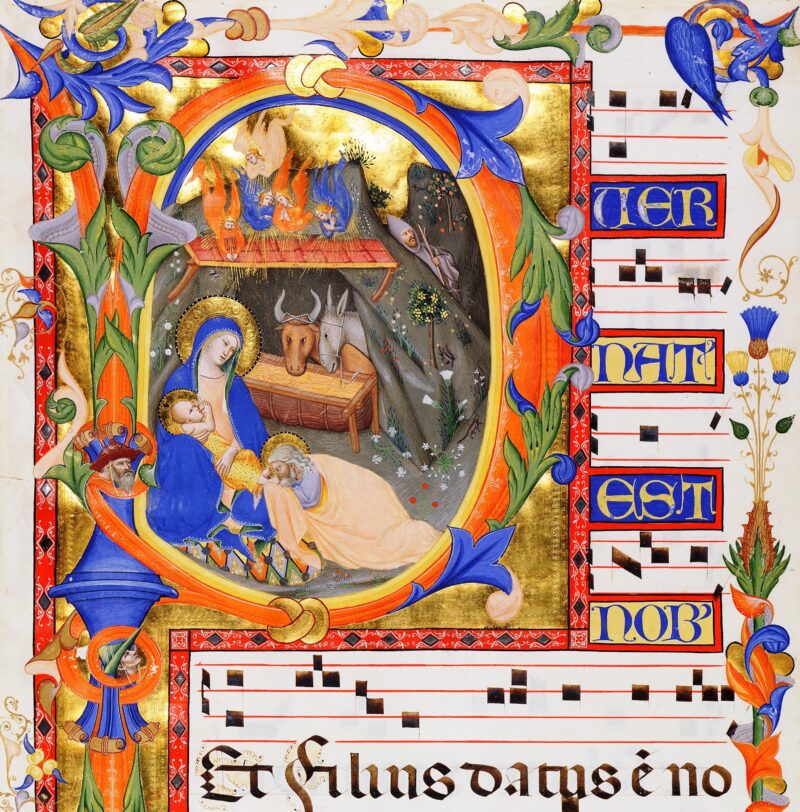 PUER
NAT'
EST
NOB'
Et Filius datus é no